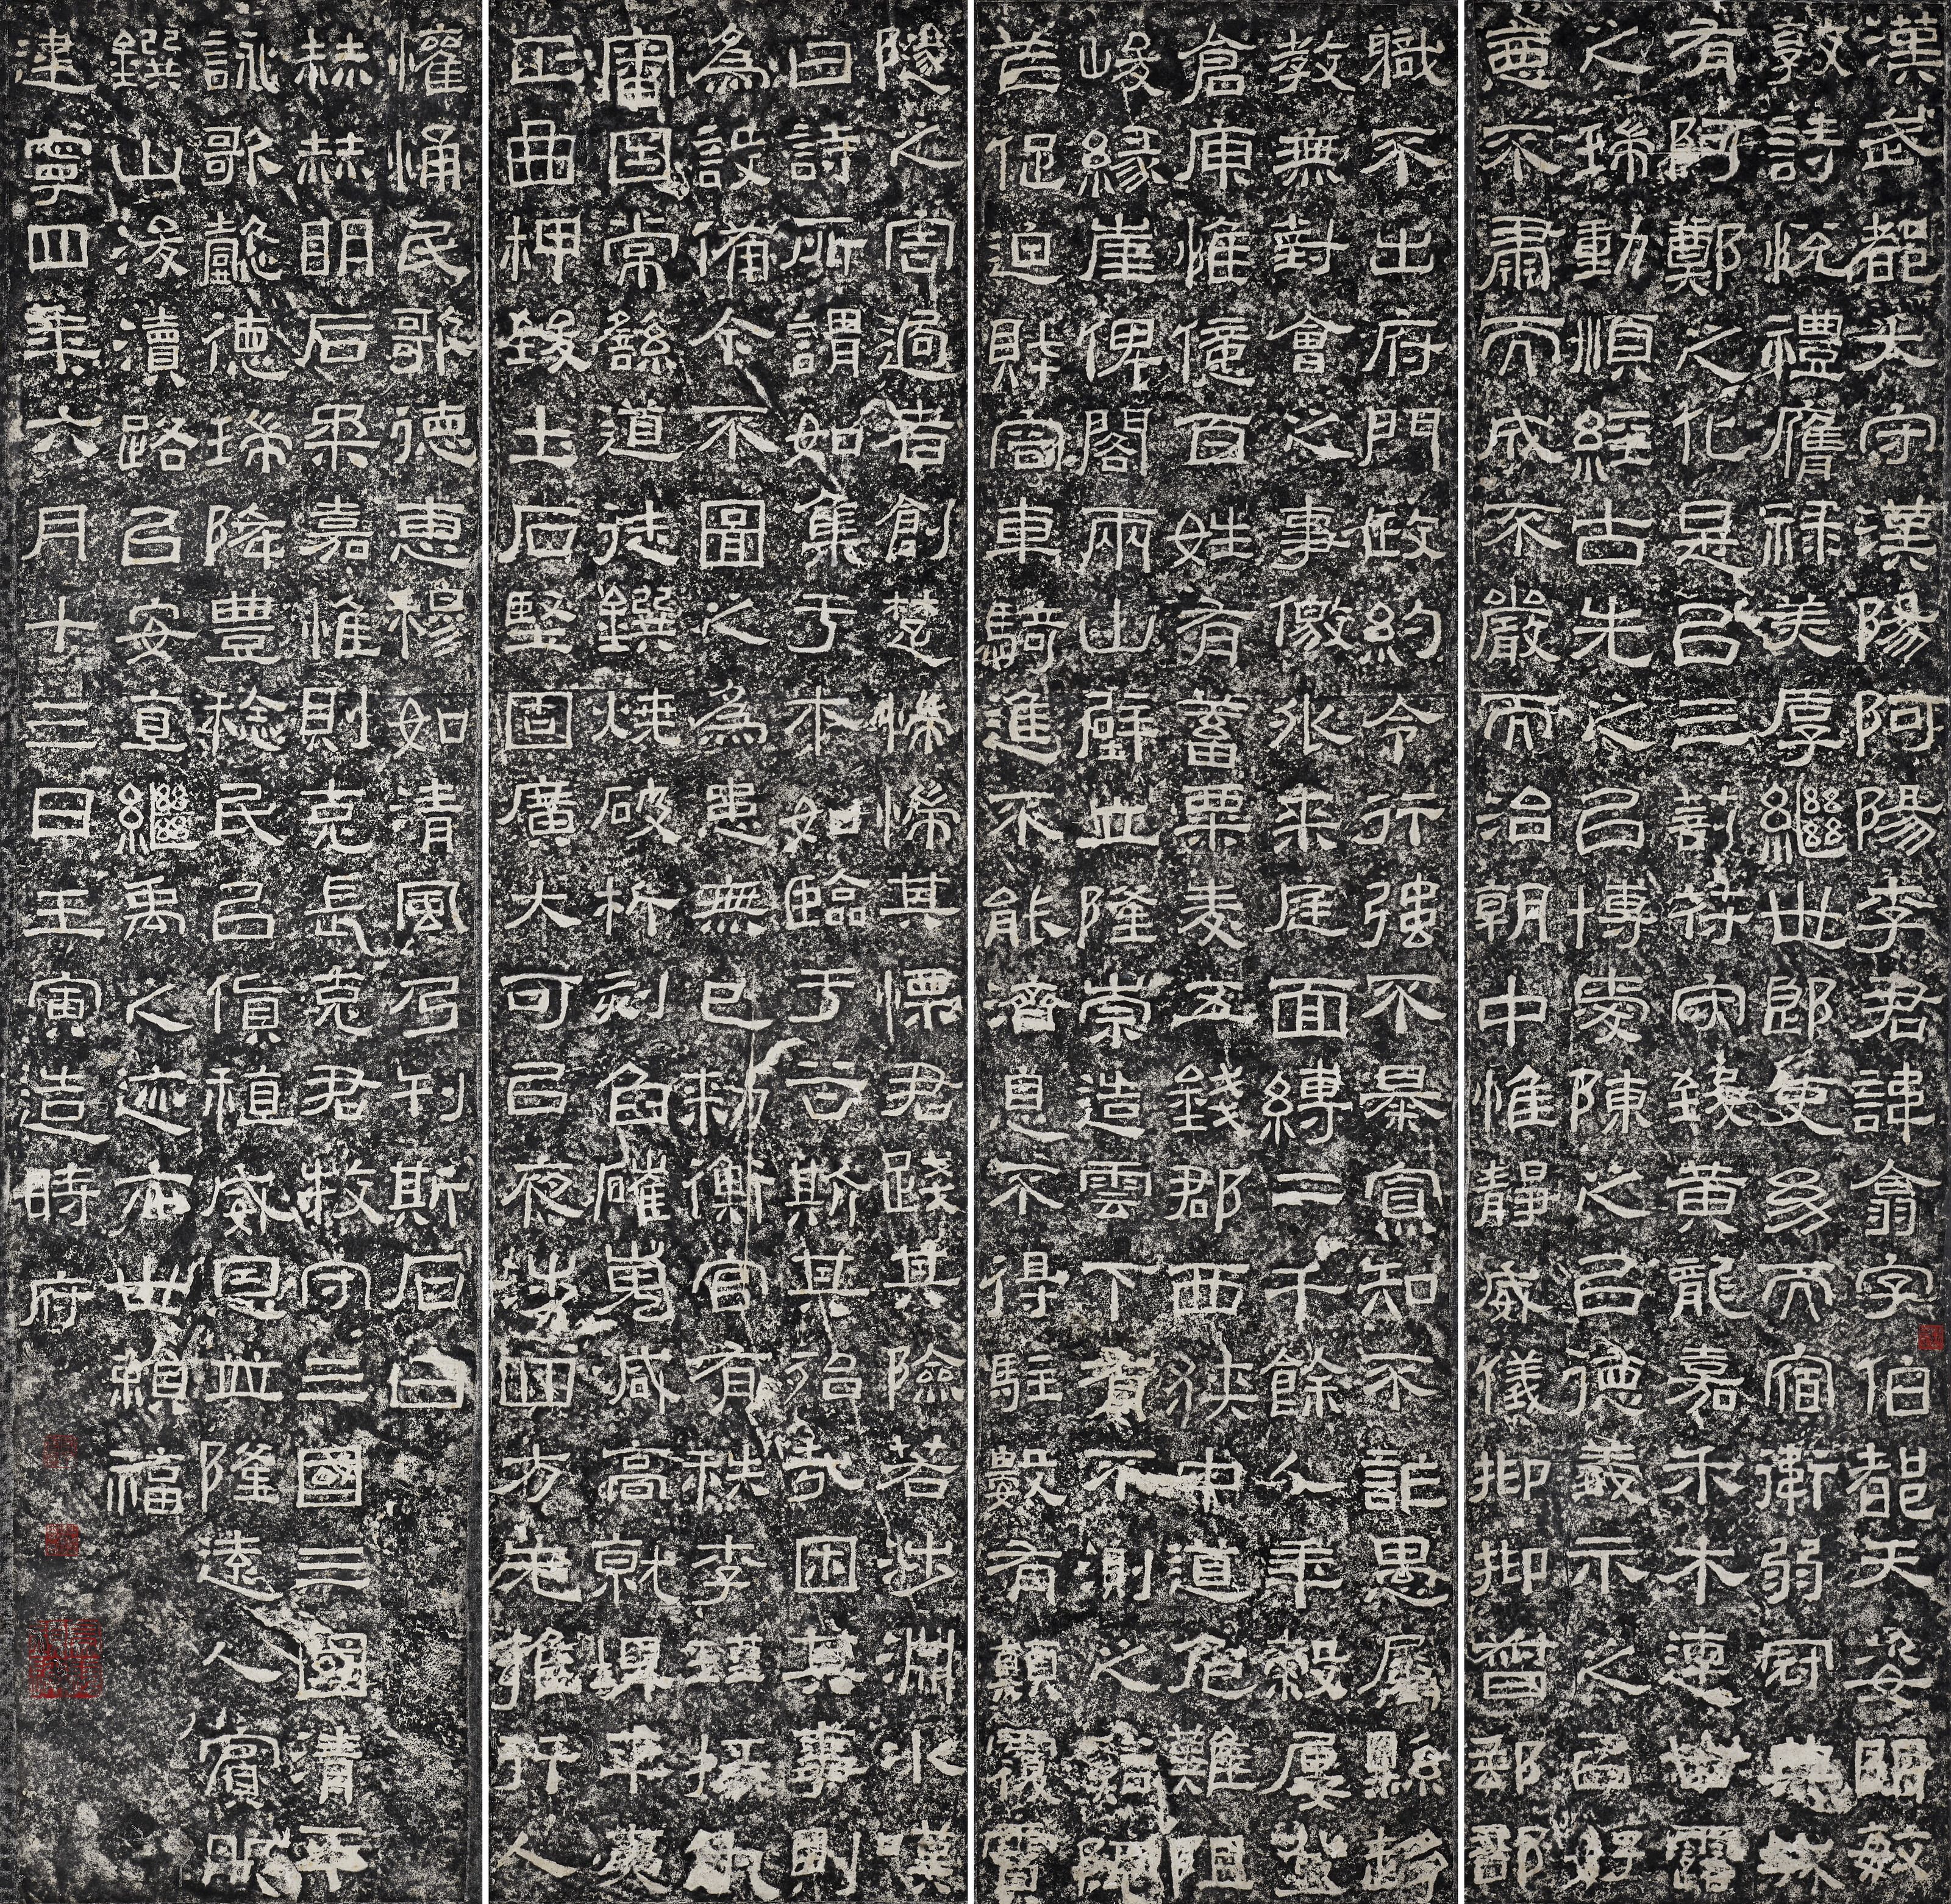 漢武都太守漢陽阿陽李君諱翕字伯都天姿明敏
敦詩悅禮膺祿美厚繼世郎吏幼而宿衛弱冠典城
有阿鄭之化是以三剖符守致黃龍嘉禾木連甘露
之瑞動順經古先之以博愛陳之以德義示之以好
惡不肅而成不嚴而治朝中惟靜威儀抑抑督郵部
職不出府門政約令行強不暴寡知不詐愚屬縣趍
教無對會之事儌外來庭面縛二千餘人年穀屢登
倉庾惟億百姓有蓄粟麥五錢郡西狹中道危難阻
峻緣崖俾閣兩山壁立隆崇造雲下有不測之谿阨
芒促迫財容車騎進不能濟息不得駐數有顛覆霣
隧之害過者創楚惴惴其慄君踐其險若涉淵水嘆
曰詩所謂如集于木如臨于谷斯其殆哉困其事則
為設備今不圖之為患無已敕衡官有秩李瑾掾仇
審因常繇道徒鐉燒破析刻臽磪嵬減高就埤平夷
正曲柙致土石堅固廣大可以夜涉四方无雍行人
懽悀民歌德惠穆如清風乃刊斯石曰
赫赫明后柔嘉惟則克長克君牧守三國三國清平
詠歌懿德瑞降豐稔民以貨稙威恩並隆遠人賓服
鐉山浚瀆路以安直繼禹之迹亦世賴福
建寧四年六月十三日壬寅造時府